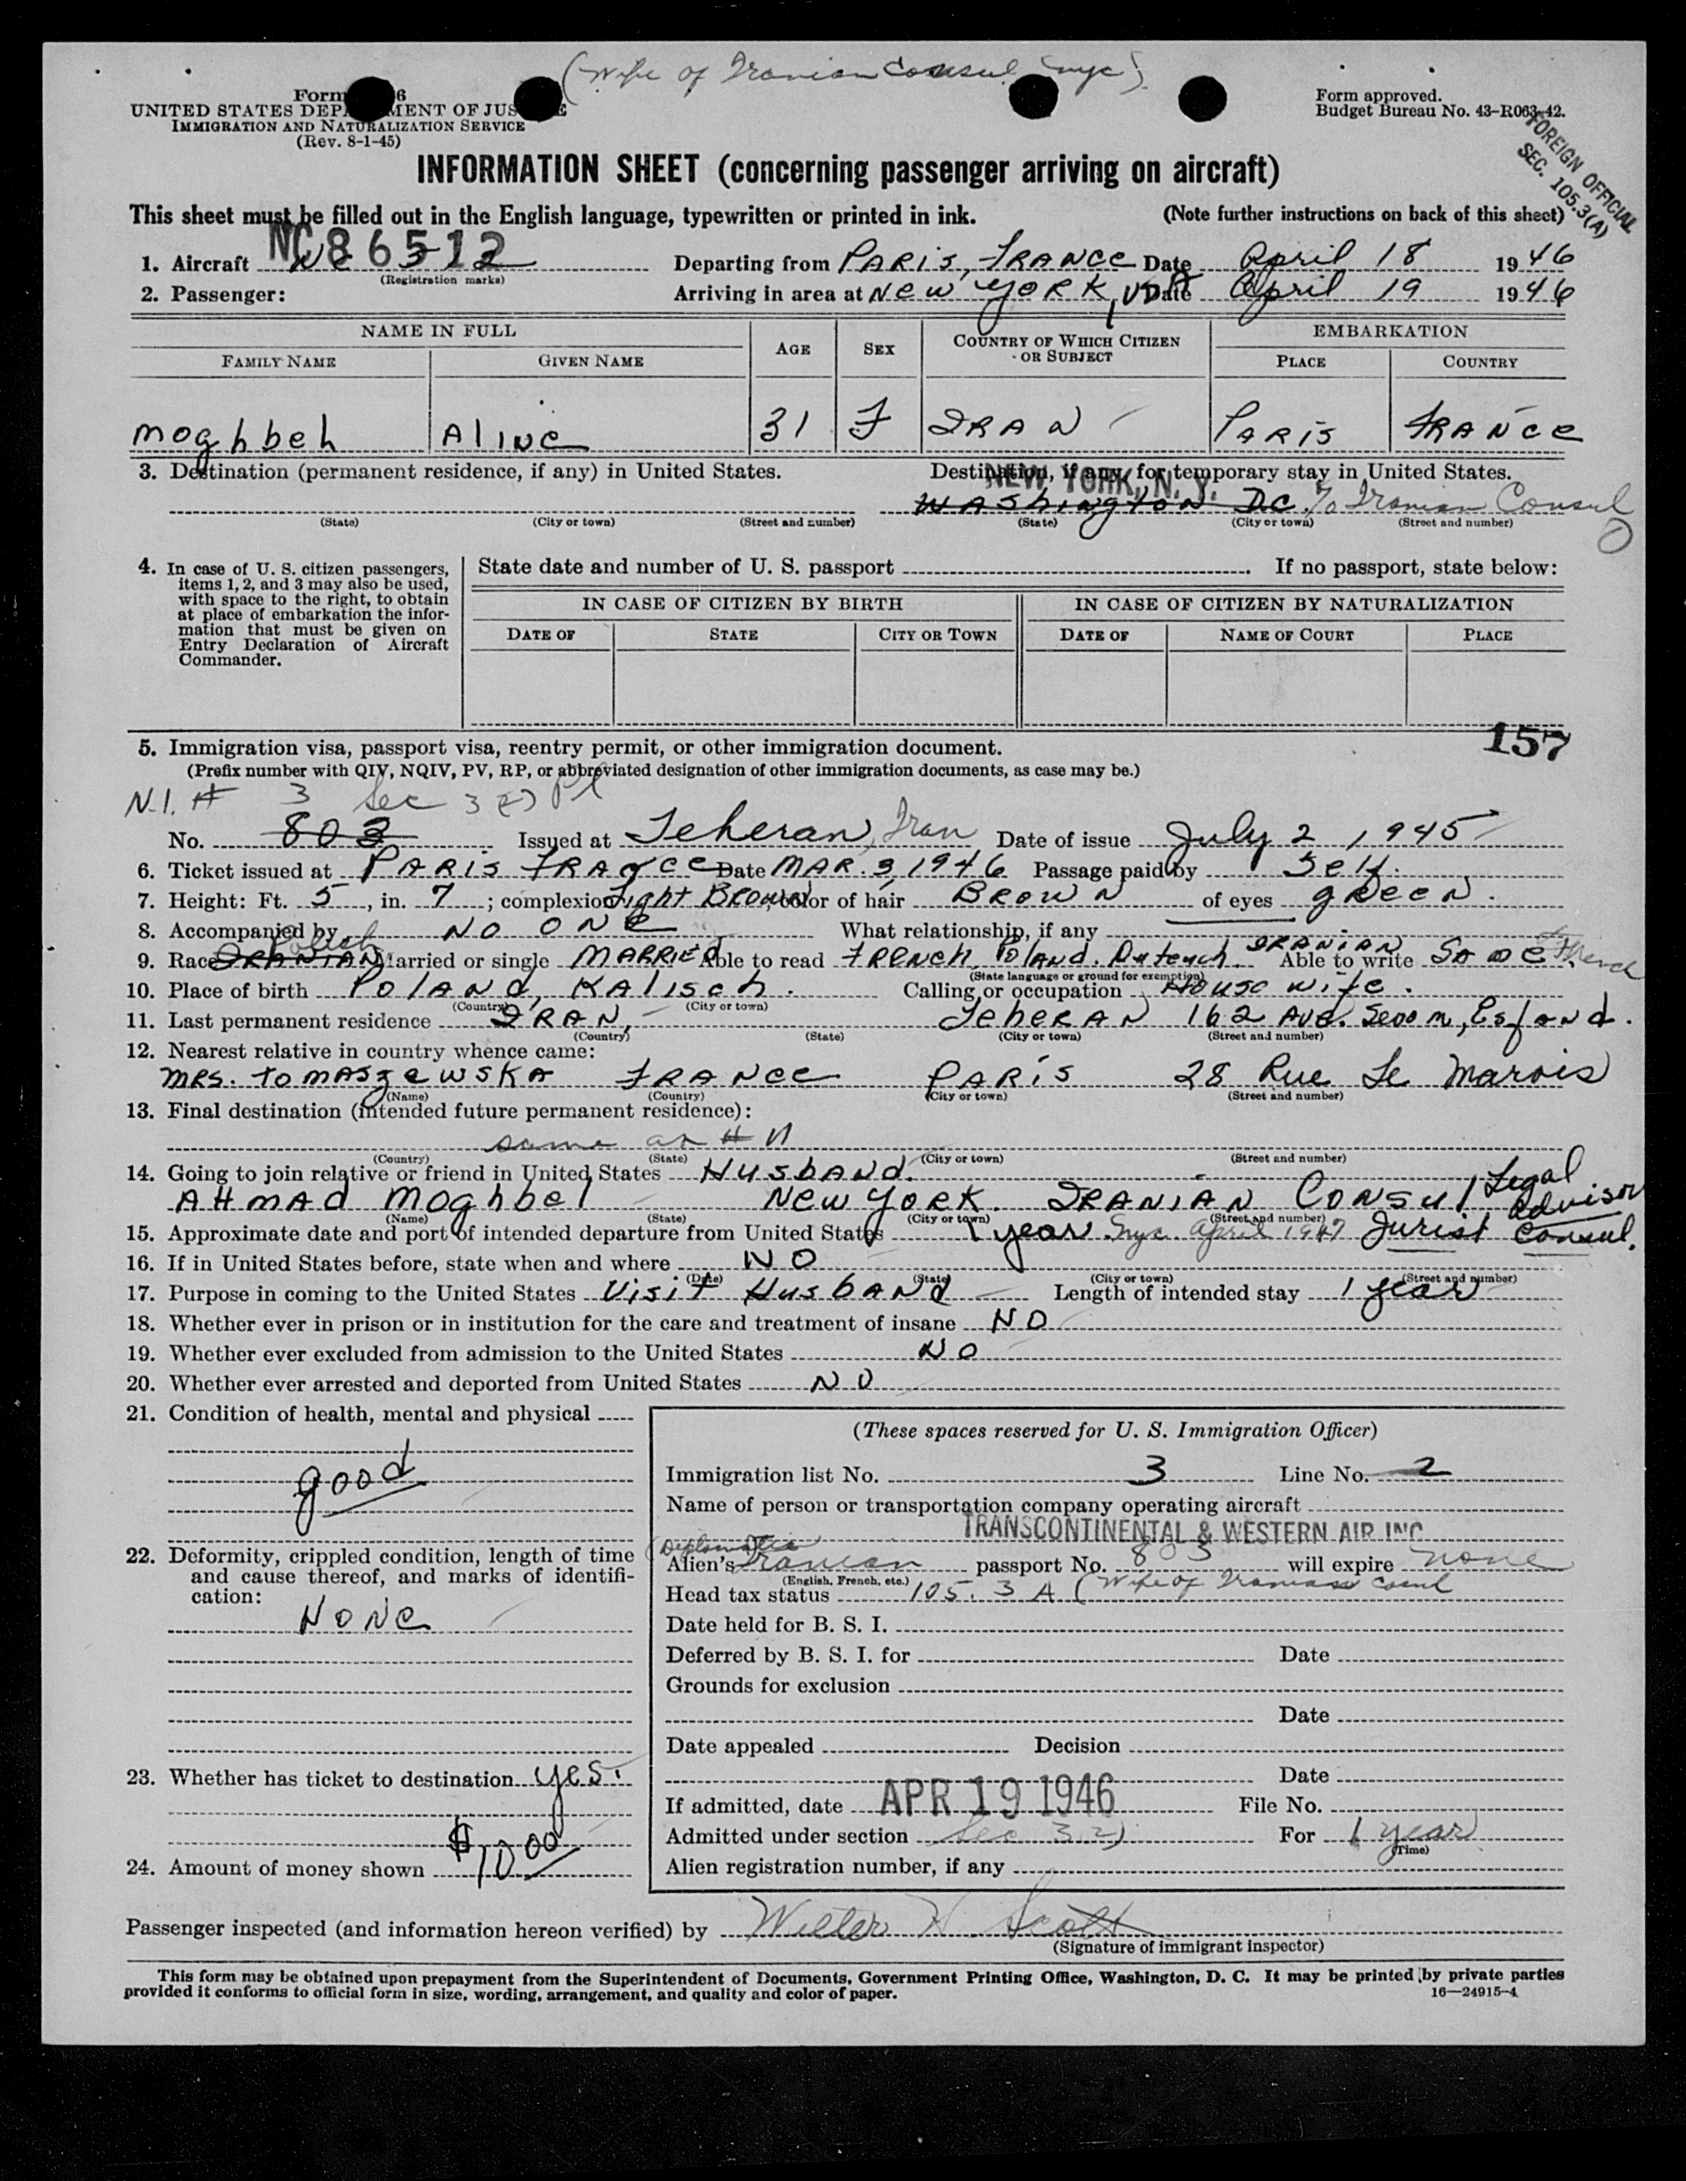 (Wife of Iranian Consul nyc)
Form 6
UNITED STATES DEPARTMENT OF JUSTICE
IMMIGRATION AND NATURALIZATION SERVICE
(Rev. 8-1-45)
Form approved.
Budget Bureau No. 43-R063-42.
FOREIGN OFFICIAL
SEC. 105.3(A)
INFORMATION SHEET (concerning passenger arriving on aircraft)
This sheet must be filled out in the English language, typewritten or printed in ink. (Note further instructions on back of this sheet)
1. Aircraft NC 86512 Departing from PARIS, FRANCE Date April 18 1946
(Registration marks)
2. Passenger: Arriving in area at NEW YORK, USA Date April 19 1946
NAME IN FULL AGE SEX COUNTRY OF WHICH CITIZEN OR SUBJECT EMBARKATION
FAMILY NAME GIVEN NAME PLACE COUNTRY
Moghbeh Aline 31 F IRAN PARIS FRANCE
3. Destination (permanent residence, if any) in United States. Destination, if any, for temporary stay in United States.
NEW YORK, N. Y.
WAShington DC. % Iranian Consul
(State) (City or town) (Street and number) (State) (City or town) (Street and number)
4. In case of U. S. citizen passengers, items 1, 2, and 3 may also be used, with space to the right, to obtain at place of embarkation the information that must be given on Entry Declaration of Aircraft Commander.
State date and number of U. S. passport . If no passport, state below:
IN CASE OF CITIZEN BY BIRTH IN CASE OF CITIZEN BY NATURALIZATION
DATE OF STATE CITY OR TOWN DATE OF NAME OF COURT PLACE
157
5. Immigration visa, passport visa, reentry permit, or other immigration document.
(Prefix number with QIV, NQIV, PV, RP, or abbreviated designation of other immigration documents, as case may be.)
N.I. # 3 Sec 3(2)
No. 803 Issued at Teheran, Iran Date of issue July 2, 1945
6. Ticket issued at PARIS FRANCE Date MAR. 3, 1946 Passage paid by Self.
7. Height: Ft. 5, in. 7; complexion Light Brown, color of hair BROWN of eyes green.
8. Accompanied by NO ONE What relationship, if any
Polish
9. Race IRANIAN Married or single MARRIED Able to read FRENCH, Poland. Duteuch IRANIAN Able to write Same. French
(State language or ground for exemption)
10. Place of birth POLAND, KALISCH. Calling or occupation House wife.
(Country) (City or town)
11. Last permanent residence IRAN, TeheRAN 162 Ave. Seoom, Esfand.
(Country) (State) (City or town) (Street and number)
12. Nearest relative in country whence came:
MRS. TOMASZEWSKA FRANCE PARIS 28 Rue Le Marois
(Name) (Country) (City or town) (Street and number)
13. Final destination (intended future permanent residence):
same as # 11
(Country) (State) (City or town) (Street and number)
14. Going to join relative or friend in United States HUSbAND.
AHMAD Moghbel NEW YORK. IRANIAN CONSUL Legal advisor
(Name) (State) (City or town) (Street and number)
15. Approximate date and port of intended departure from United States 1 year. nyc. April 1947 Jurist Consul.
16. If in United States before, state when and where NO
(Date) (State) (City or town) (Street and number)
17. Purpose in coming to the United States Visit Husband Length of intended stay 1 year
18. Whether ever in prison or in institution for the care and treatment of insane NO
19. Whether ever excluded from admission to the United States NO
20. Whether ever arrested and deported from United States NO
21. Condition of health, mental and physical
good
22. Deformity, crippled condition, length of time and cause thereof, and marks of identification:
NONE
23. Whether has ticket to destination yes.
24. Amount of money shown $10.00
(These spaces reserved for U. S. Immigration Officer)
Immigration list No. 3 Line No. 2
Name of person or transportation company operating aircraft
TRANSCONTINENTAL & WESTERN AIR INC
(Diplomatic
Alien's Iranian passport No. 803 will expire none
(English, French, etc.)
Head tax status 105. 3 A (Wife of Iranian Consul
Date held for B. S. I.
Deferred by B. S. I. for Date
Grounds for exclusion
Date
Date appealed Decision
Date
If admitted, date APR 19 1946 File No.
Admitted under section Sec 3 2) For 1 year
(Time)
Alien registration number, if any
Passenger inspected (and information hereon verified) by Walter H Scott
(Signature of immigrant inspector)
This form may be obtained upon prepayment from the Superintendent of Documents, Government Printing Office, Washington, D. C. It may be printed by private parties
provided it conforms to official form in size, wording, arrangement, and quality and color of paper. 16—24915-4